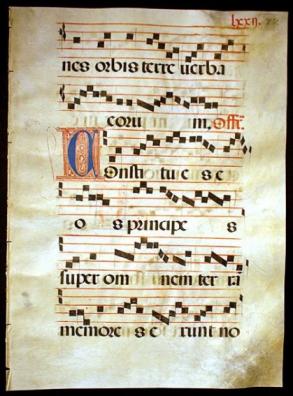 lxxij.
nes orbis terre uerba
eoru m. Off.
Consti tu e s e
o s principe s
super om nem ter ra
memore s e runt no